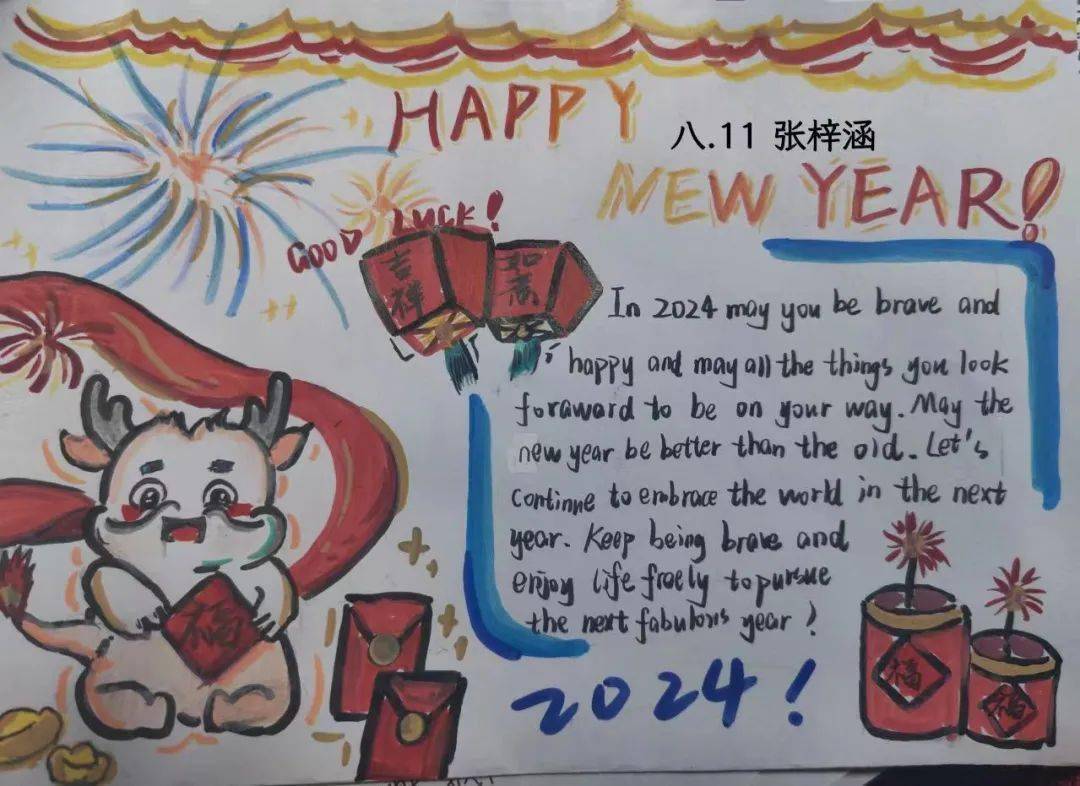 HAPPY
八.11 张梓涵
NEW YEAR!
GOOD LUCK!
吉祥
如意
In 2024 may you be brave and
happy and may all the things you look
foraward to be on your way. May the
new year be better than the old. Let's
continue to embrace the world in the next
year. Keep being brave and
enjoy life freely to pursue
the next fabulous year!
福
福
福
2024!